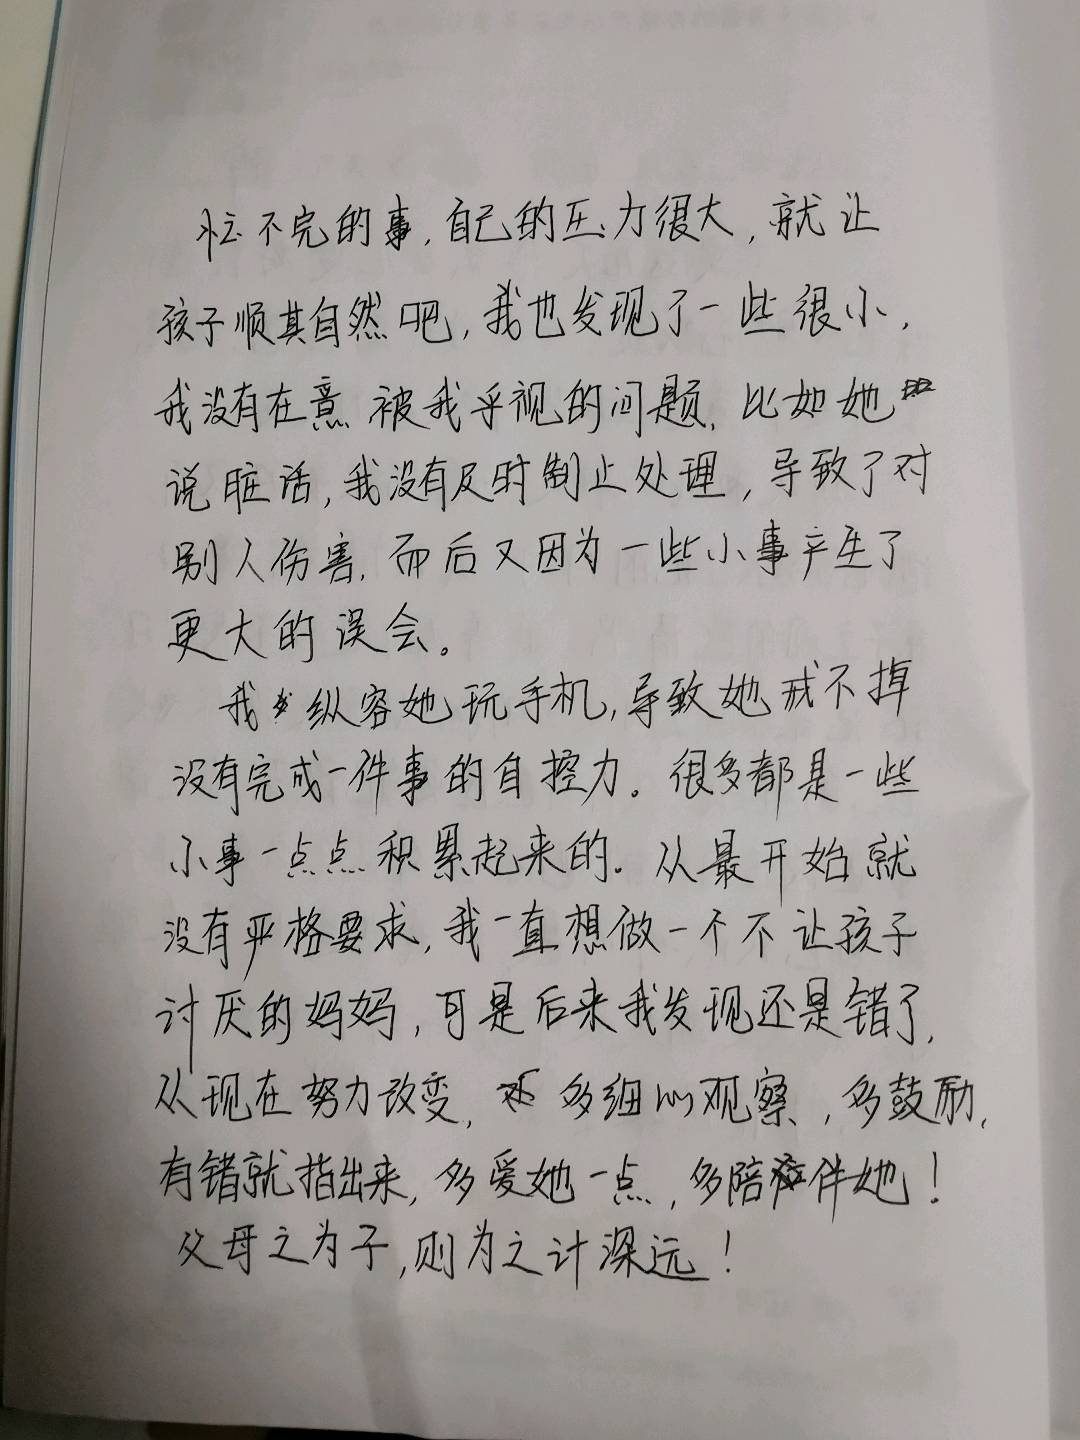 忙不完的事,自己的压力很大,就让
孩子顺其自然吧,我也发现了一些很小,
我没有在意 被我乎视的问题,比如她
说脏话,我没有及时制止处理,导致了对
别人伤害,而后又因为一些小事产生了
更大的误会。
我 纵容她玩手机,导致她戒不掉
没有完成一件事的自控力。很多都是一些
小事一点点积累起来的。从最开始就
没有严格要求,我一直想做一个不让孩子
讨厌的妈妈,可是后来我发现还是错了,
从现在努力改变, 多细心观察,多鼓励,
有错就指出来,多爱她一点,多陪伴她!
父母之为子,则为之计深远!